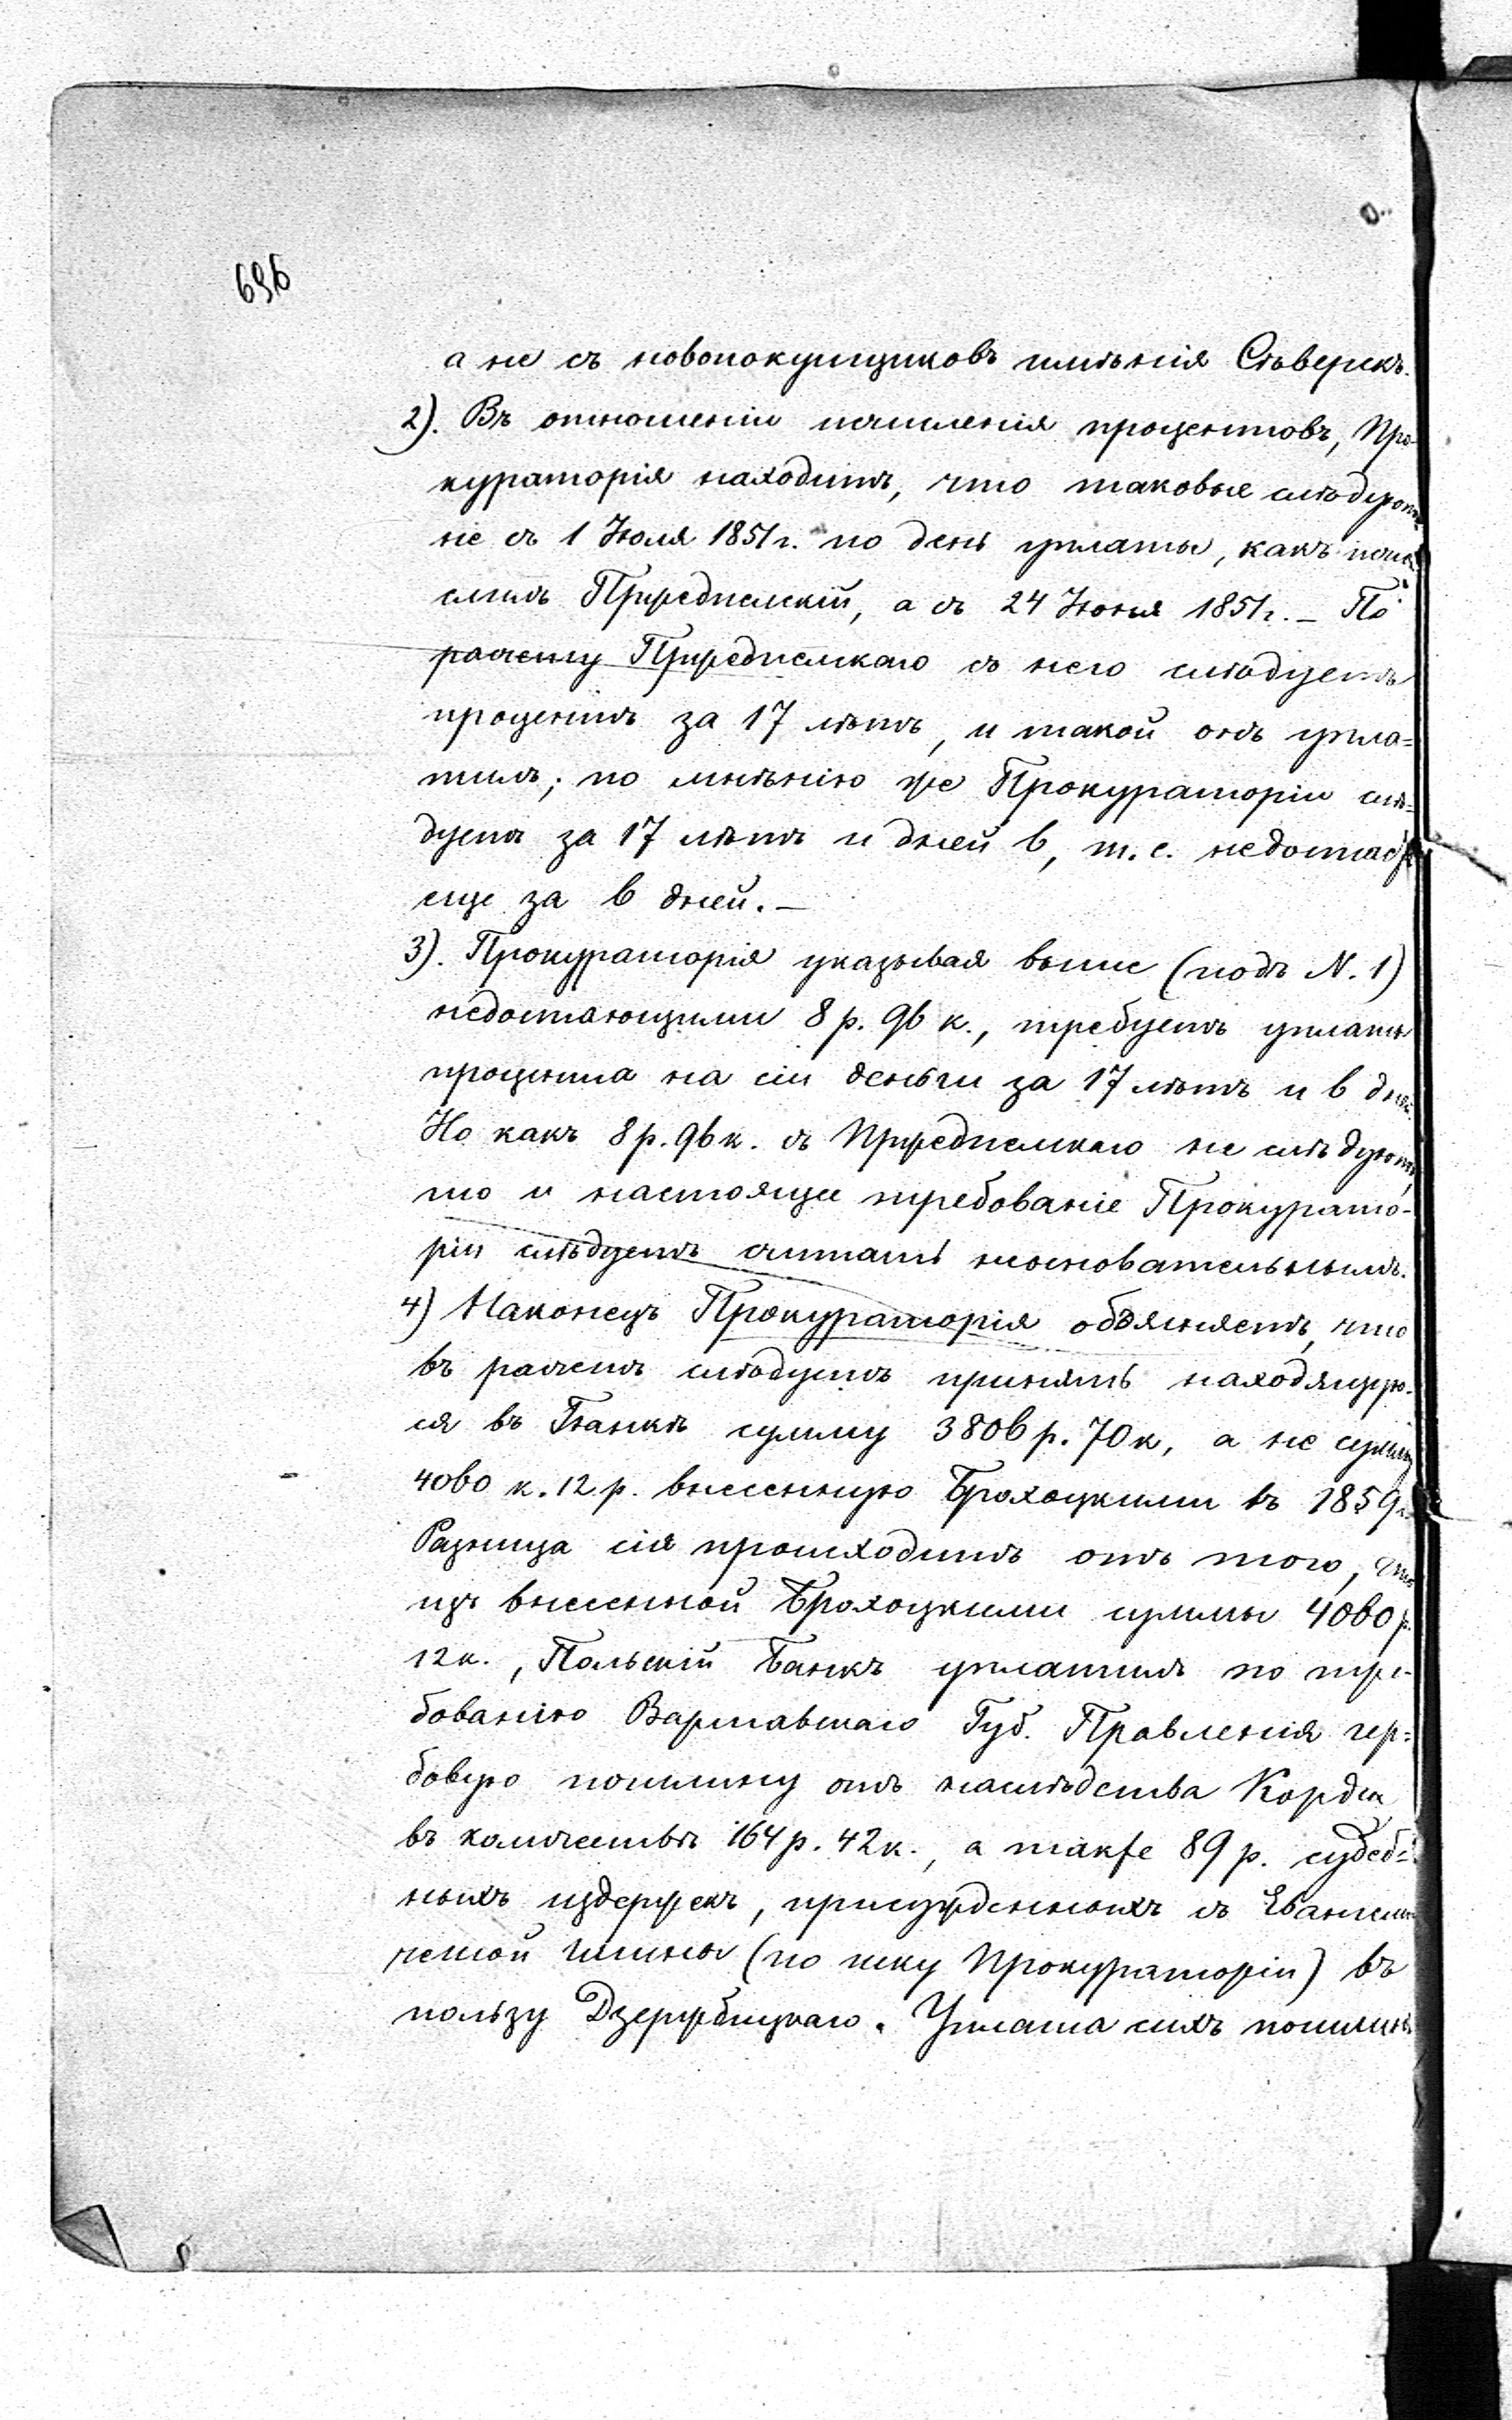 696
а не съ новопокупщиковъ имѣнія Сѣверскъ.
2). Въ отношеніи исчисленія процентовъ, Про-
кураторія находитъ, что таковые слѣдуютъ
не съ 1 Іюля 1851 г. по день уплаты, какъ исчи-
слилъ Пршедпелскій, а съ 24 Іюня 1851 г. – По
расчету Пршедпелскаго съ него слѣдуетъ
процентъ за 17 лѣтъ, и такой онъ упла-
тилъ; по мнѣнію же Прокураторіи слѣ-
дуетъ за 17 лѣтъ и дней 6, т. е. недостаетъ
еще за 6 дней. –
3). Прокураторія указывая выше (подъ N. 1)
недостающими 8 р. 96 к., требуетъ уплаты
процента на сіи деньги за 17 лѣтъ и 6 дней.
Но какъ 8 р. 96 к. съ Пршедпелскаго не слѣдуютъ,
то и настоящее требованіе Прокурато-
ріи слѣдуетъ считать неосновательнымъ.
4) Наконецъ Прокураторія объясняетъ, что
въ расчетъ слѣдуетъ принять находящую-
ся въ Банкѣ сумму 3806 р. 70 к, а не сумму
4060 к. 12 р. внесенную Брохоцкими въ 1859 г.
Разница сія происходитъ отъ того, что
изъ внесенной Брохоцкими суммы 4060 р.
12 к., Польскій Банкъ уплатилъ по тре-
бованію Варшавскаго Губ. Правленія гер-
бовую пошлину отъ наслѣдства Кордея
въ количествѣ 164 р. 42 к., а также 89 р. судеб-
ныхъ издержекъ, присужденныхъ съ Евангели-
ческой гмины (по иску Прокураторіи) въ
пользу Дзержбицкаго. Уплата сихъ пошлинъ